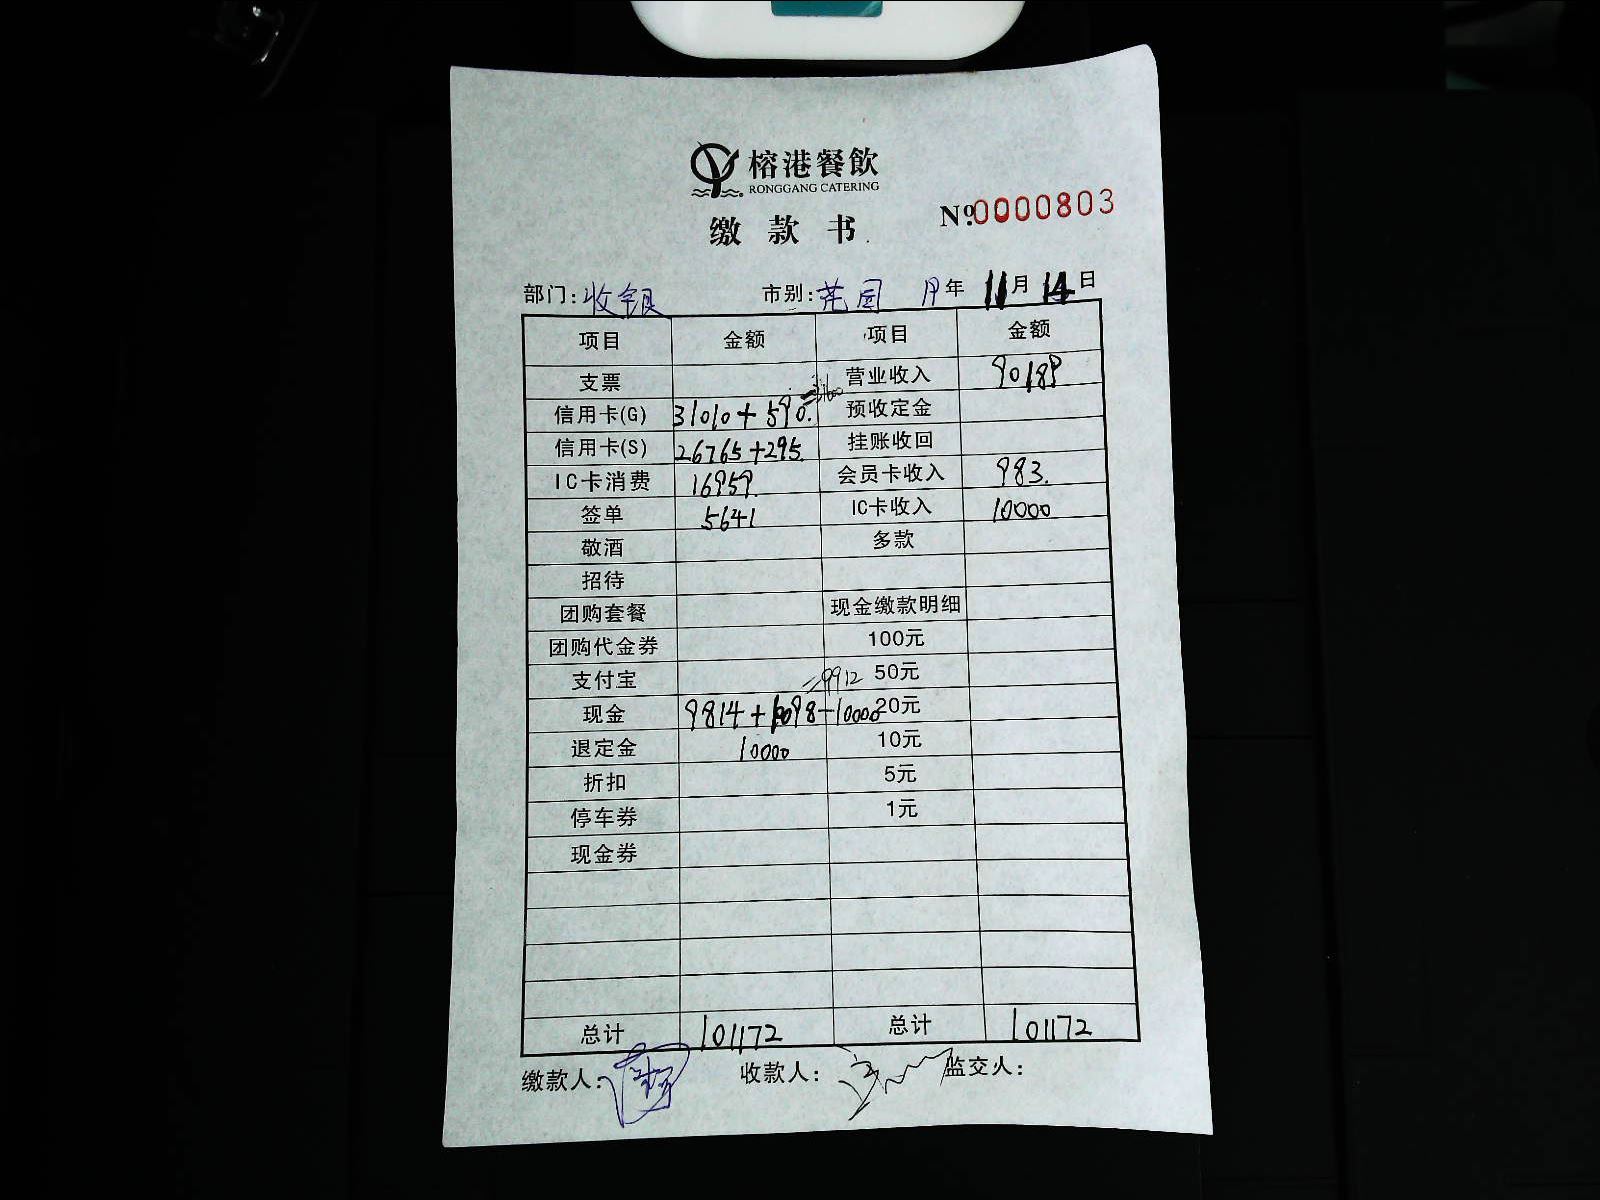 榕港餐飲
RONGGANG CATERING
缴款书
№0000803
部门:收银 市别:芫园 年 11月 14日
项目 金额 项目 金额
支票 营业收入 90189
信用卡(G) 31010+590. =31600 预收定金
信用卡(S) 26765+295. 挂账收回
IC卡消费 16959. 会员卡收入 983.
签单 5641 IC卡收入 10000
敬酒 多款
招待
团购套餐 现金缴款明细
团购代金券 100元
支付宝 50元
现金 9814+10098-10000 =9912 20元
退定金 10000 10元
折扣 5元
停车券 1元
现金券
总计 101172 总计 101172
缴款人: 收款人: 监交人: